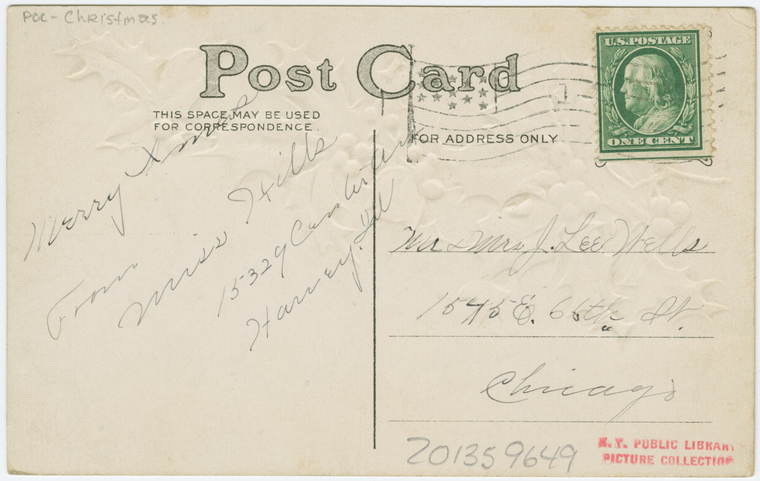 PCC - Christmas.
Post Card
THIS SPACE MAY BE USED
FOR CORRESPONDENCE.
FOR ADDRESS ONLY
U.S. POSTAGE
ONE CENT
Merry Xmas
From
Miss Hills
15329
Harvey. Ill
Mr & Mrs J. Lee Wells
1545 E. 66th St.
Chicago
201359649
N.Y. PUBLIC LIBRARY
PICTURE COLLECTION